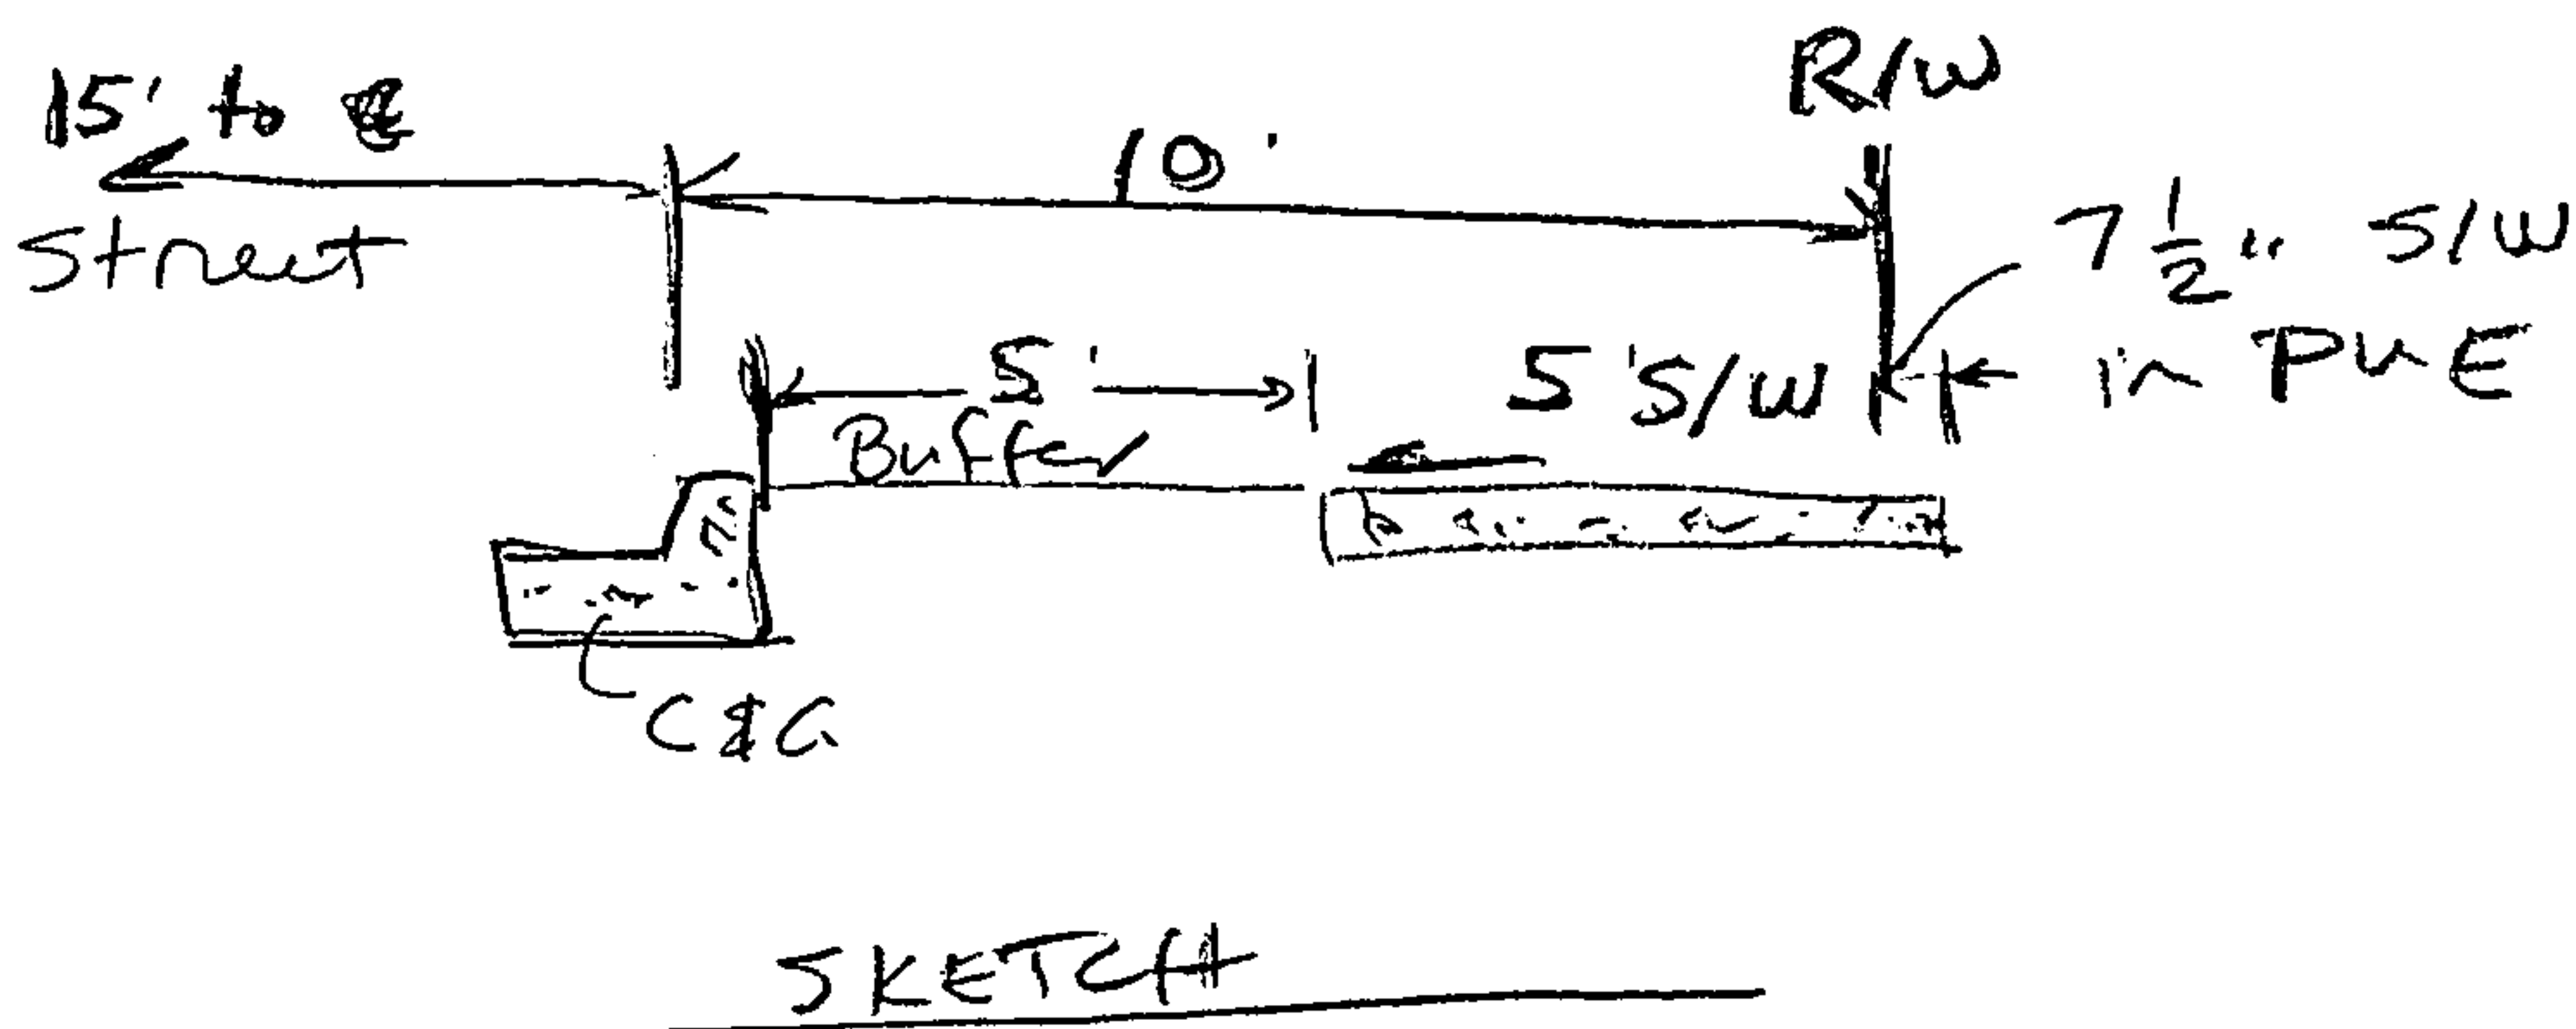 15' to ℄
Street
10'
R/W
7 1/2" S/W
in PUE
5'
Buffer
5' S/W
C&G
SKETCH